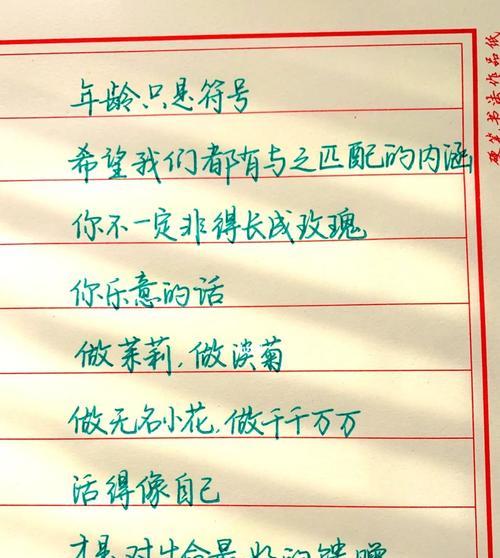 年龄只是符号
希望我们都有与之匹配的内涵
你不一定非得长成玫瑰
你乐意的话
做茉莉,做淡菊
做无名小花,做千千万万
活得像自己
才是对生命最好的馈赠
硬笔书法作品纸